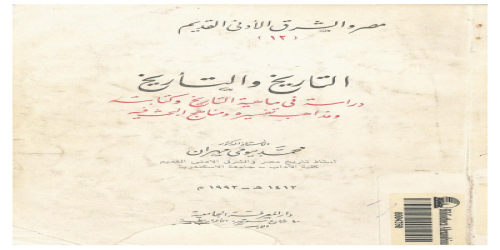 مصر والشرق الأدنى القديم
(١٢)
التاريخ والتأريخ
دراسة في ماهية التاريخ وكتابته
ومذاهب تفسيره ومناهج البحث فيه
الأستاذ الدكتور
محمد بيومي مهران
أستاذ تاريخ مصر والشرق الأدنى القديم
كلية الآداب - جامعة الاسكندرية
١٤١٣ هـ - ١٩٩٢ م
دار المعرفة الجامعية